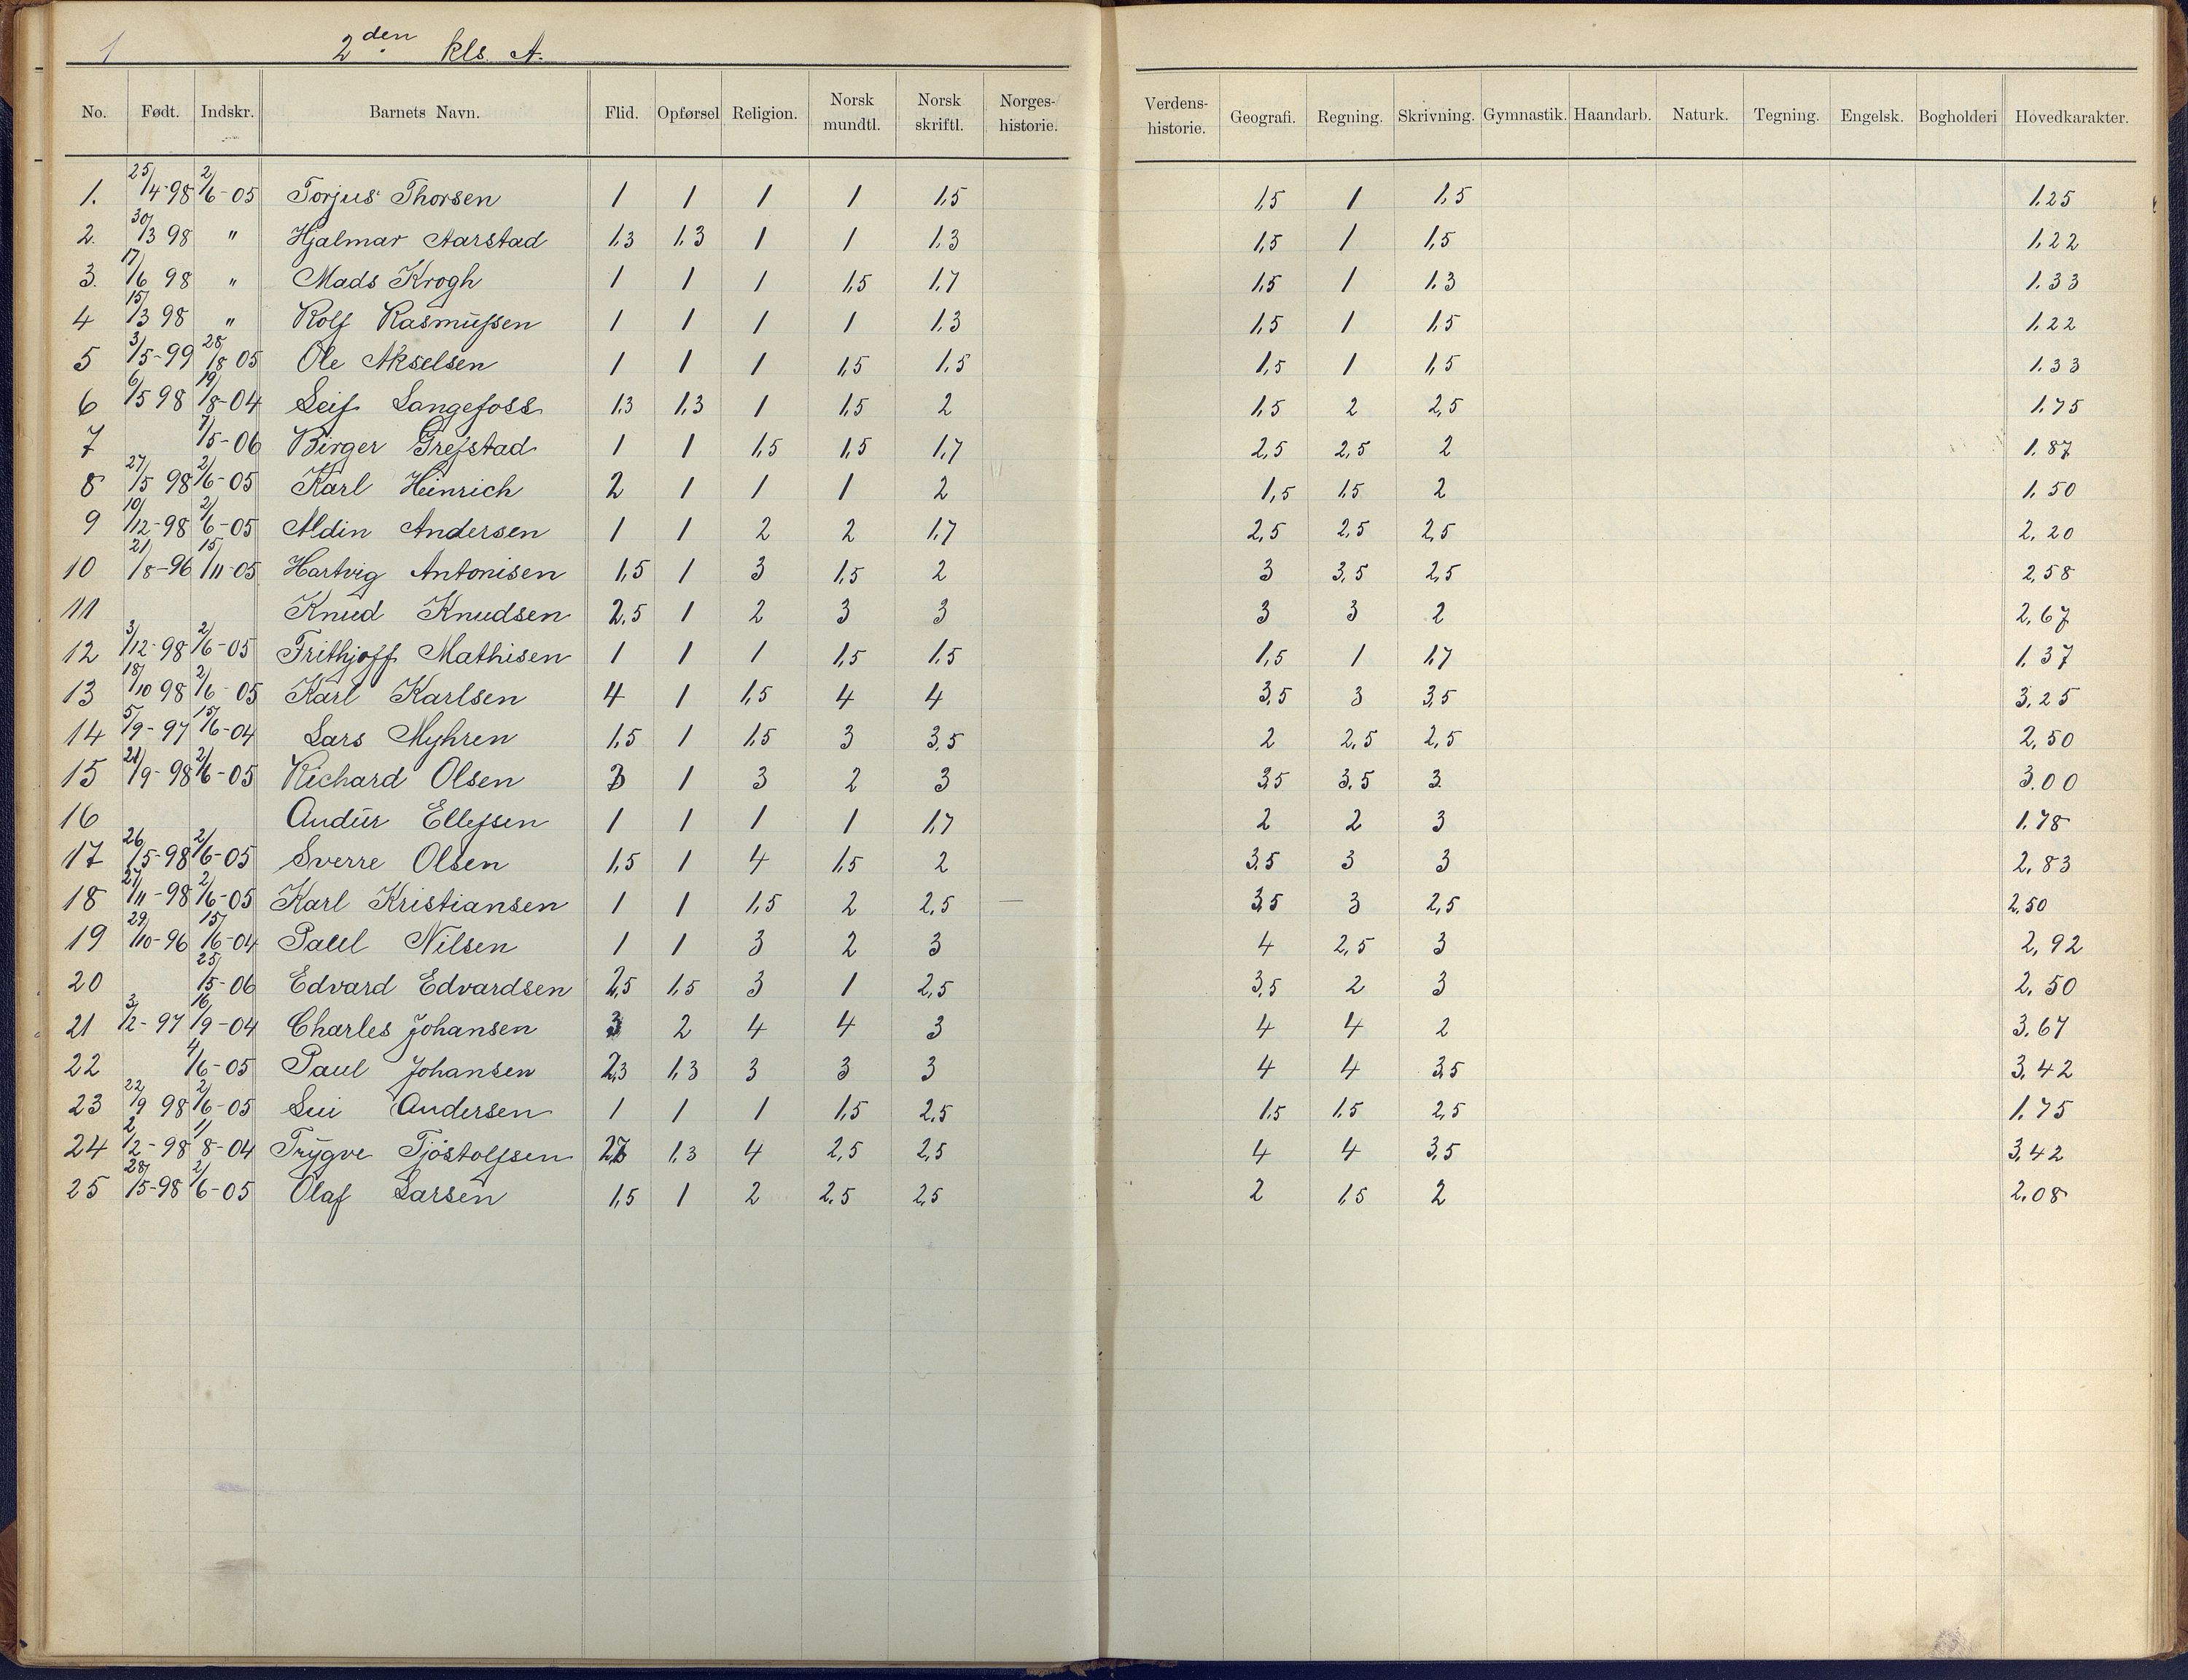 1 2den kls. A.
No. Født. Indskr. Barnets Navn. Flid. Opførsel Religion. Norsk mundtl. Norsk skriftl. Norges-historie. Verdens-historie. Geografi. Regning. Skrivning. Gymnastik. Haandarb. Naturk. Tegning. Engelsk. Bogholderi Hovedkarakter.
1. 25/4-98 2/6-05 Torjus Thorsen 1 1 1 1 1,5 1,5 1 1,5 1.25
2. 30/3 98 " Hjalmar Aarstad 1,3 1,3 1 1 1,3 1,5 1 1,5 1,22
3. 17/6 98 " Mads Krogh 1 1 1 1,5 1,7 1,5 1 1.3 1.33
4 15/3 98 " Rolf Rasmussen 1 1 1 1 1,3 1,5 1 1,5 1,22
5 3/5-99 28/8 05 Ole Akselsen 1 1 1 1,5 1,5 1,5 1 1,5 1.33
6 6/5 98 19/8-04 Leif Langefoss 1,3 1,3 1 1,5 2 1,5 2 2,5 1.75
7 7/5-06 Birger Grefstad 1 1 1,5 1,5 1,7 2,5 2,5 2 1.87
8 27/5 98 2/6-05 Karl Heinrich 2 1 1 1 2 1,5 1,5 2 1.50
9 10/12-98 2/6-05 Aldin Andersen 1 1 2 2 1,7 2,5 2,5 2,5 2,20
10 21/8-96 15/11-05 Hartvig Antonisen 1,5 1 3 1,5 2 3 3,5 2,5 2,58
11 Knud Knudsen 2,5 1 2 3 3 3 3 2 2,67
12 3/12-98 2/6-05 Frithjoff Mathisen 1 1 1 1,5 1,5 1,5 1 1,7 1.37
13 18/10 98 2/6-05 Karl Karlsen 4 1 1,5 4 4 3,5 3 3,5 3,25
14 5/9-97 15/6-04 Lars Myhren 1,5 1 1,5 3 3,5 2 2,5 2,5 2,50
15 21/9-98 2/6-05 Richard Olsen 3 1 3 2 3 3,5 3,5 3 3.00
16 Andür Ellefsen 1 1 1 1 1,7 2 2 3 1.78
17 26/5-98 2/6-05 Sverre Olsen 1,5 1 4 1,5 2 3,5 3 3 2,83
18 27/11-98 2/6-05 Karl Kristiansen 1 1 1,5 2 2,5 — 3,5 3 2,5 2,50
19 29/10-96 15/6-04 Paul Nilsen 1 1 3 2 3 4 2,5 3 2,92
20 25/5-06 Edvard Edvardsen 2,5 1,5 3 1 2,5 3,5 2 3 2,50
21 3/2-97 16/9-04 Charles Johansen 3 2 4 4 3 4 4 2 3,67
22 4/6-05 Paul Johansen 2,3 1,3 3 3 3 4 4 3,5 3,42
23 22/9 98 2/6-05 Lui Andersen 1 1 1 1,5 2,5 1,5 1,5 2,5 1.75
24 2/2-98 11/8-04 Trygve Tjöstolfsen 1,3 4 2,5 2,5 4 4 3,5 3,42
25 28/5-98 2/6-05 Olaf Larsen 1,5 1 2 2,5 2,5 2 1,5 2 2,08